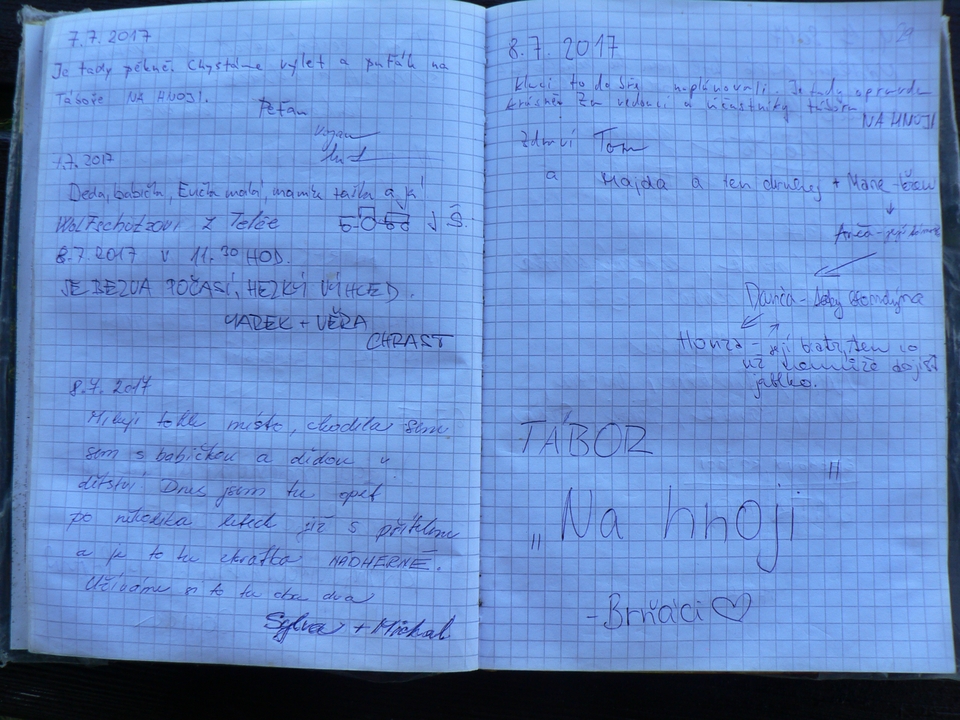 7.7.2017
Je tady pěkně. Chystáme výlet a puťák na
Táboře NA HNOJI.
Peťan
Vojan
7.7.2017
Děda, babička, Evička malá, mamka taťka a já
Wolfschützovi z Telče
8.7.2017 V 11.30 HOD.
JE BEZVA POČASÍ, HEZKÝ VÝHLED.
MAREK + VĚRA
CHRAST
8.7.2017
Miluji tohle místo, chodila jsem
sem s babičkou a dědou v
dětství. Dnes jsem tu opět
po několika letech již s přítelem
a je to tu zkrátka NÁDHERNÉ.
Užíváme si to tu oba dva
Sylva + Michal
29
8.7.2017
Kluci to dobře naplánovali. Je tady opravdu
krásně. Za vedoucí a účastníky tábora
NA HNOJI
zdraví Tom
a Majda a ten druhej + Mára
Danča -
Honza - její bratr, ten co
už nemůže dojíst
jablko.
TÁBOR
„Na hnoji"
- Brňáci ♡